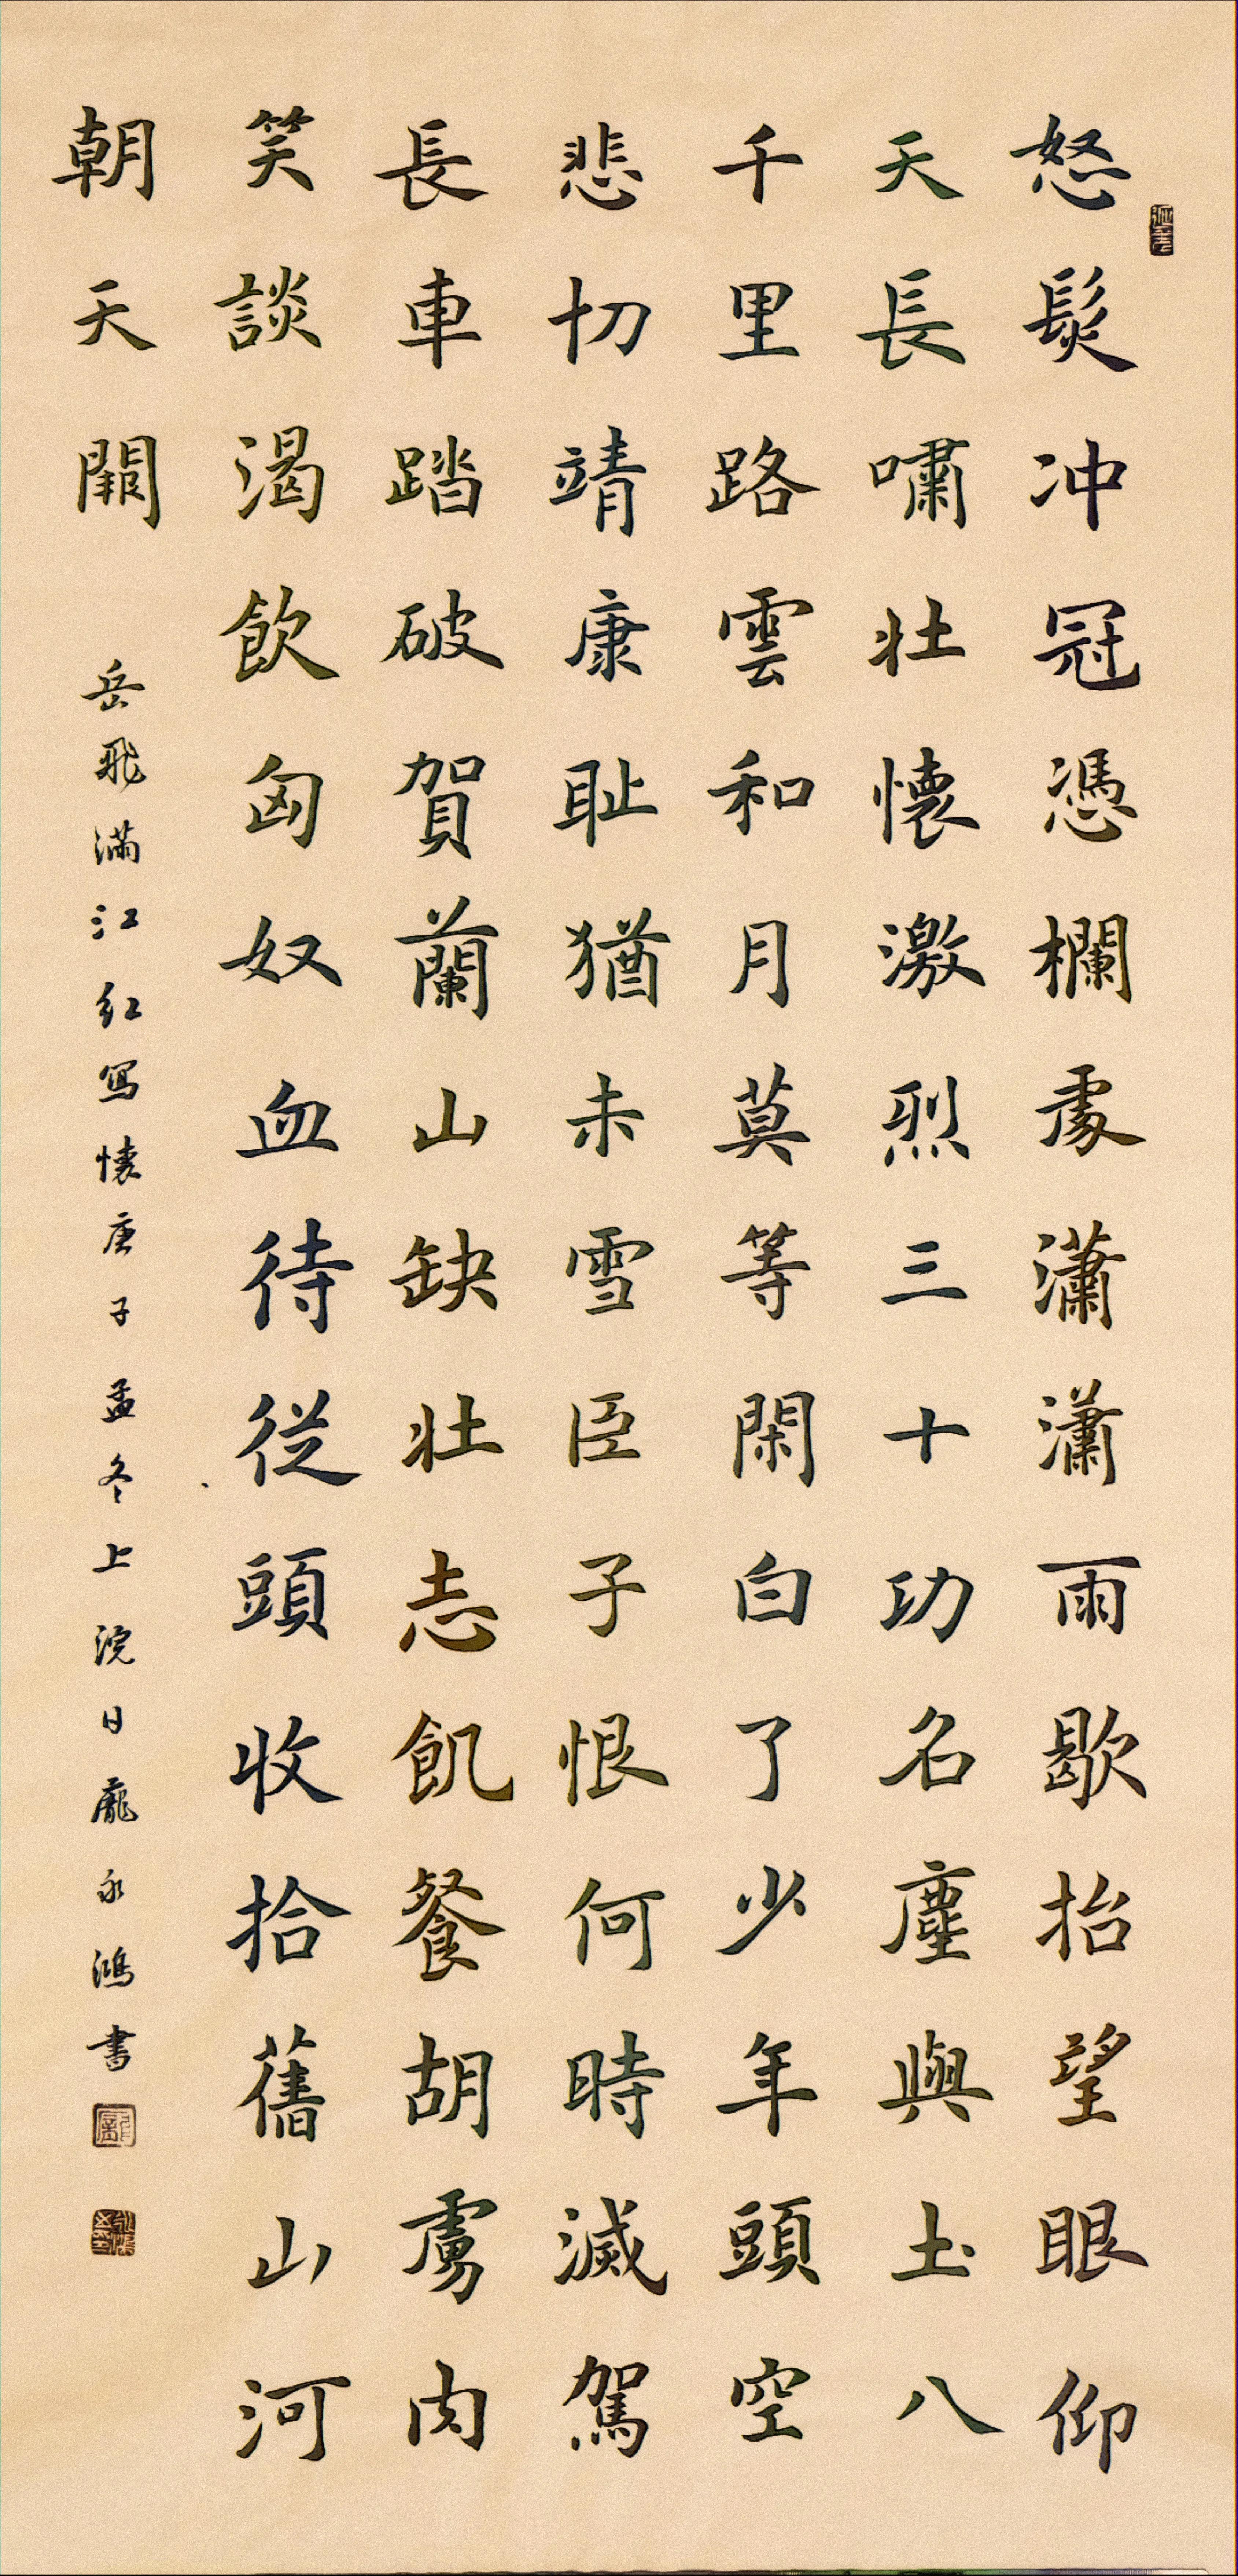 怒髮冲冠憑欄處瀟瀟雨歇抬望眼仰
天長嘯壯懷激烈三十功名塵與土八
千里路雲和月莫等閑白了少年頭空
悲切靖康耻猶未雪臣子恨何時滅駕
長車踏破賀蘭山缺壯志飢餐胡虜肉
笑談渴飲匈奴血待從頭收拾舊山河
朝天闕
岳飛滿江紅寫懷庚子孟冬上浣日龐永鴻書